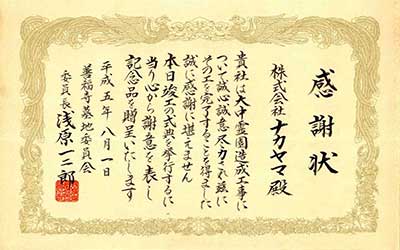 感謝状
株式会社ナカヤマ殿
貴社は大中霊園造成工事に
ついて誠心誠意尽力され茲に
その工を完了することを得ました
誠に感謝に堪えません
本日竣工の式典を挙行するに
当り心から謝意を表し
記念品を贈呈いたします
平成五年八月一日
善福寺墓地委員会
委員長 浅原一二郎